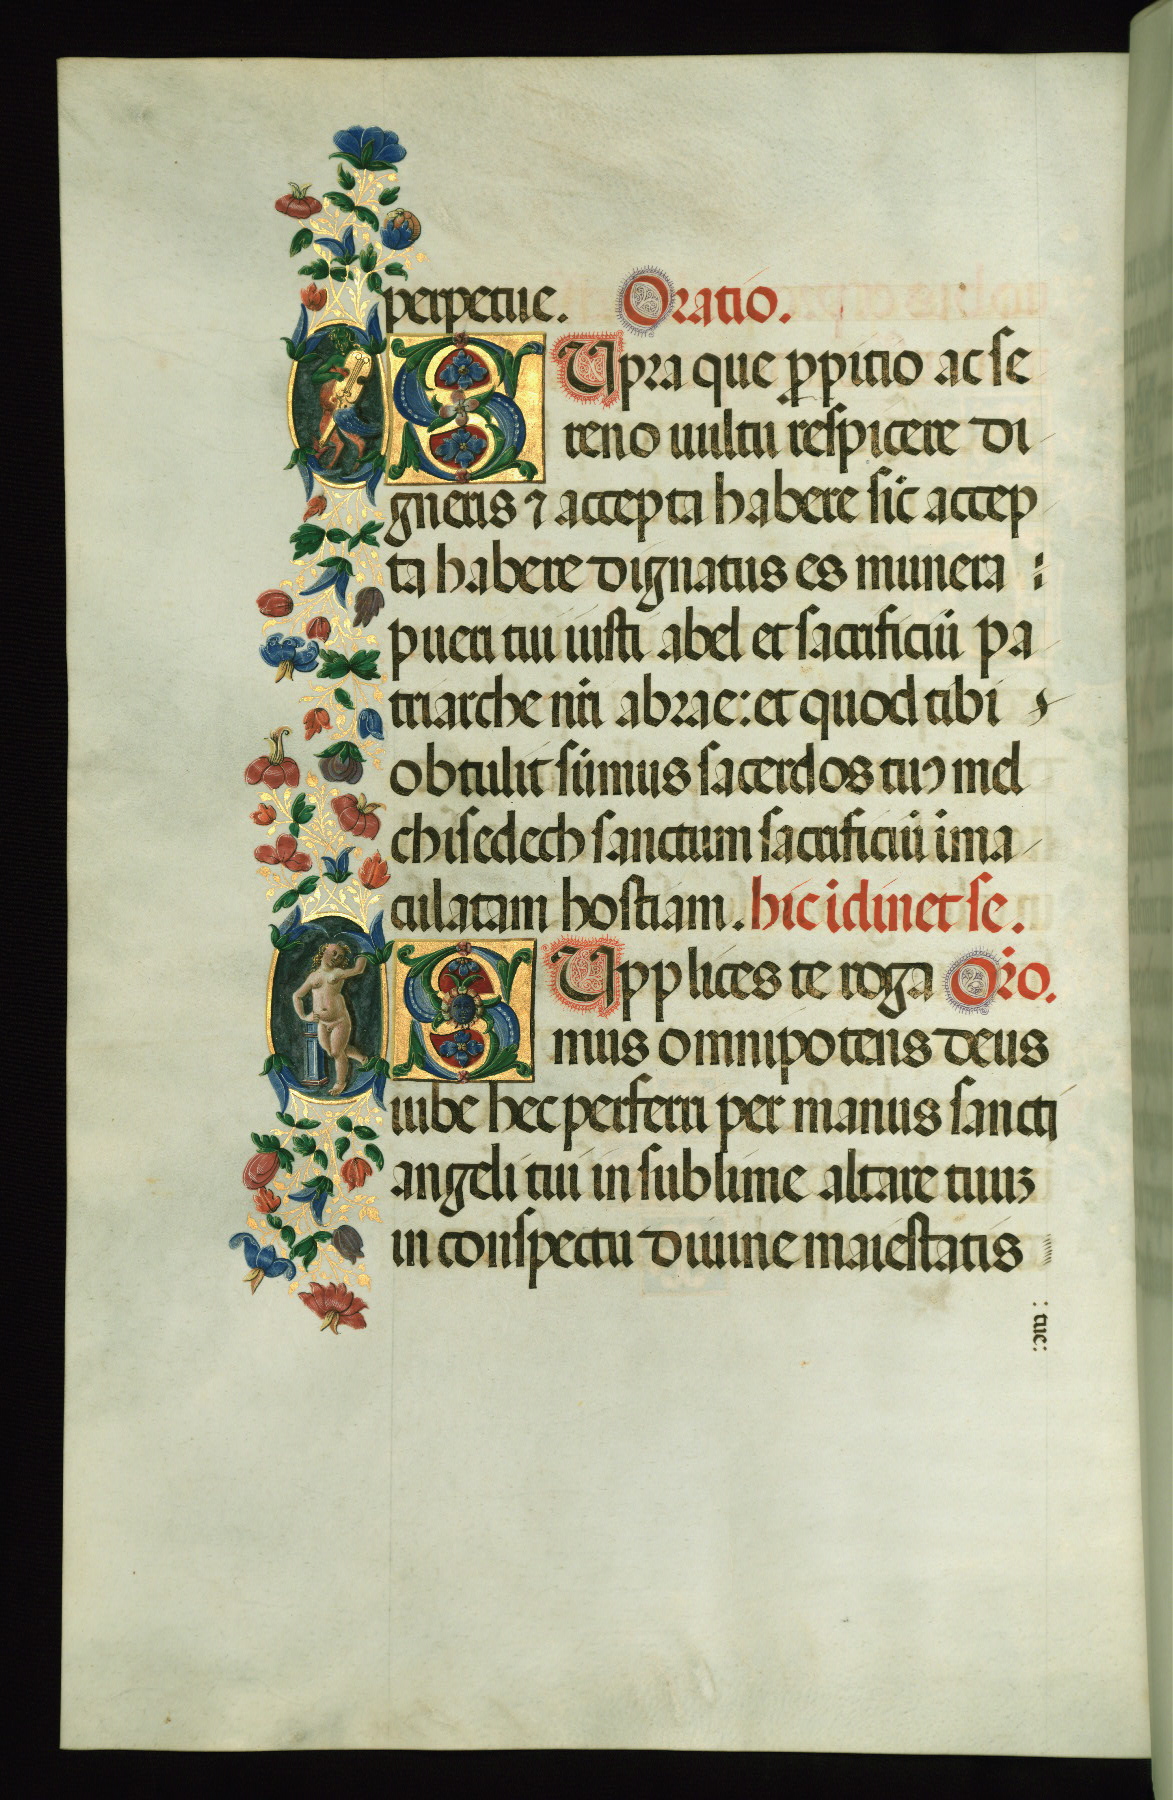 perpetue. Oratio.
SUpra que ꝓpitio ac se
reno uultu respicere di
gneris ⁊ accepta habere sic̄ accep
ta habere dignatus es munera :
pueri tui iusti abel et sacrificiū pa
triarche nr̄i abrae: et quod tibi
obtulit sūmus sacerdos tuꝰ mel
chisedech sanctum sacrificiū ima
culatam hostiam. hic īclinet se.
SUpplices te roga Orō.
mus omnipotens deus
iube hec perferri per manus sancti
angeli tui in sublime altare tuuꝫ
in conspectu diuine maiestatis
: tue: